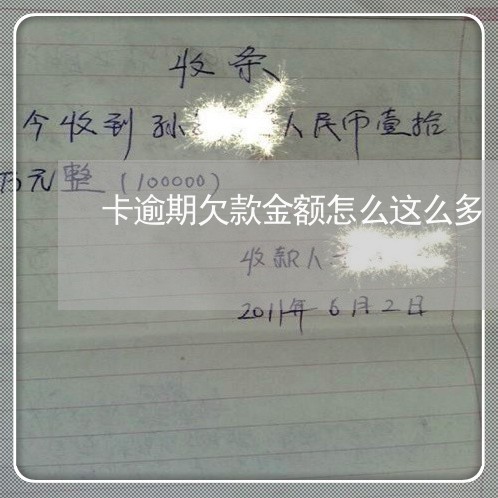 收条
今收到孙 人民币壹拾
万元整（100000）
卡逾期欠款金额怎么这么多
收款人
2011年6月2日